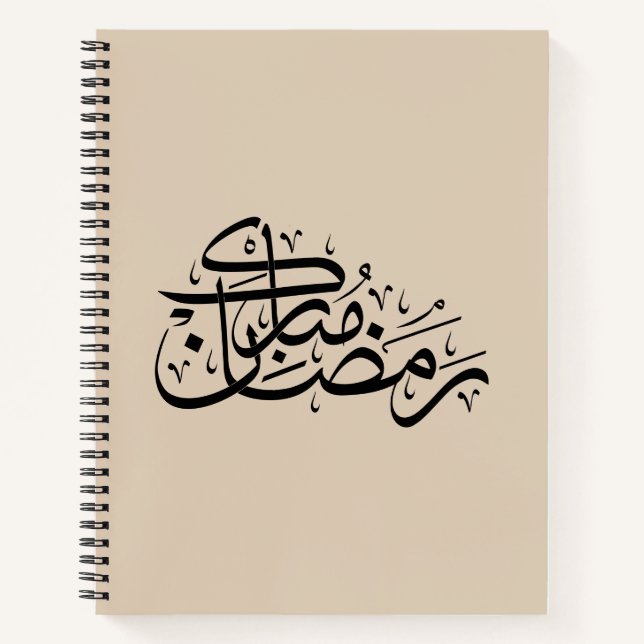 رَمَضَان مُبَارَك